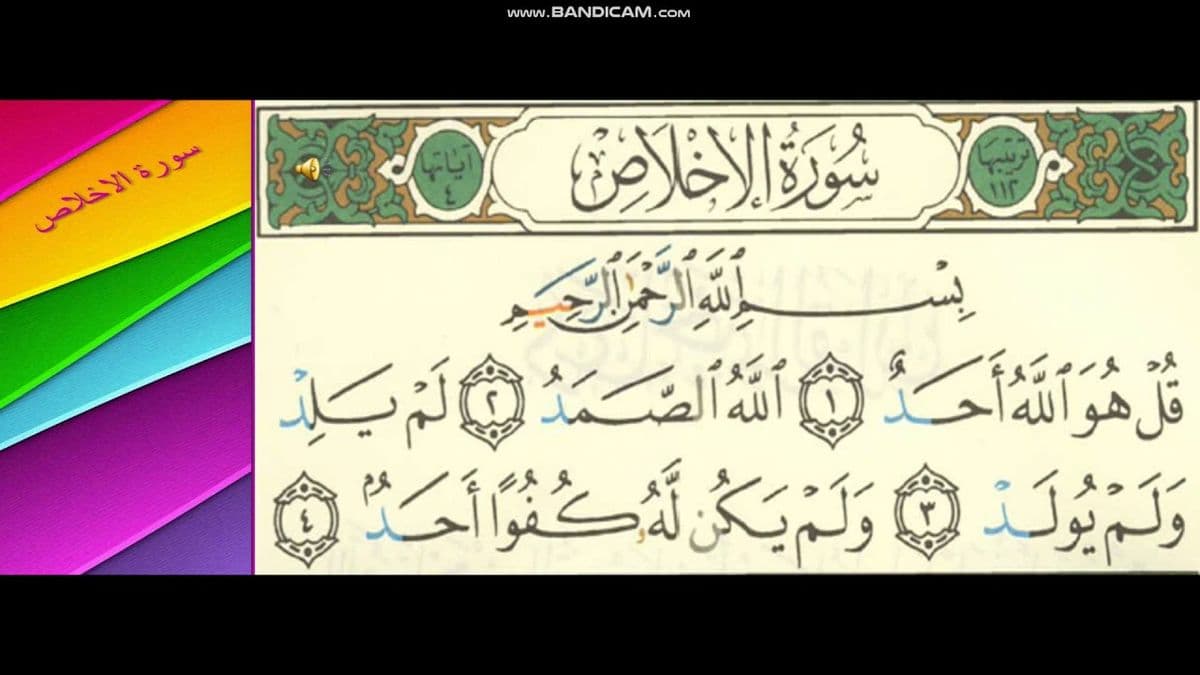 www.BANDICAM.com
سورة الاخلاص
ترتيبها ١١٢
سُورَةُ الإِخْلَاصِ
آياتها ٤
بِسْمِ ٱللَّهِ ٱلرَّحْمَٰنِ ٱلرَّحِيمِ
قُلْ هُوَ ٱللَّهُ أَحَدٌ ١ ٱللَّهُ ٱلصَّمَدُ ٢ لَمْ يَلِدْ
وَلَمْ يُولَدْ ٣ وَلَمْ يَكُن لَّهُۥ كُفُوًا أَحَدٌۢ ٤